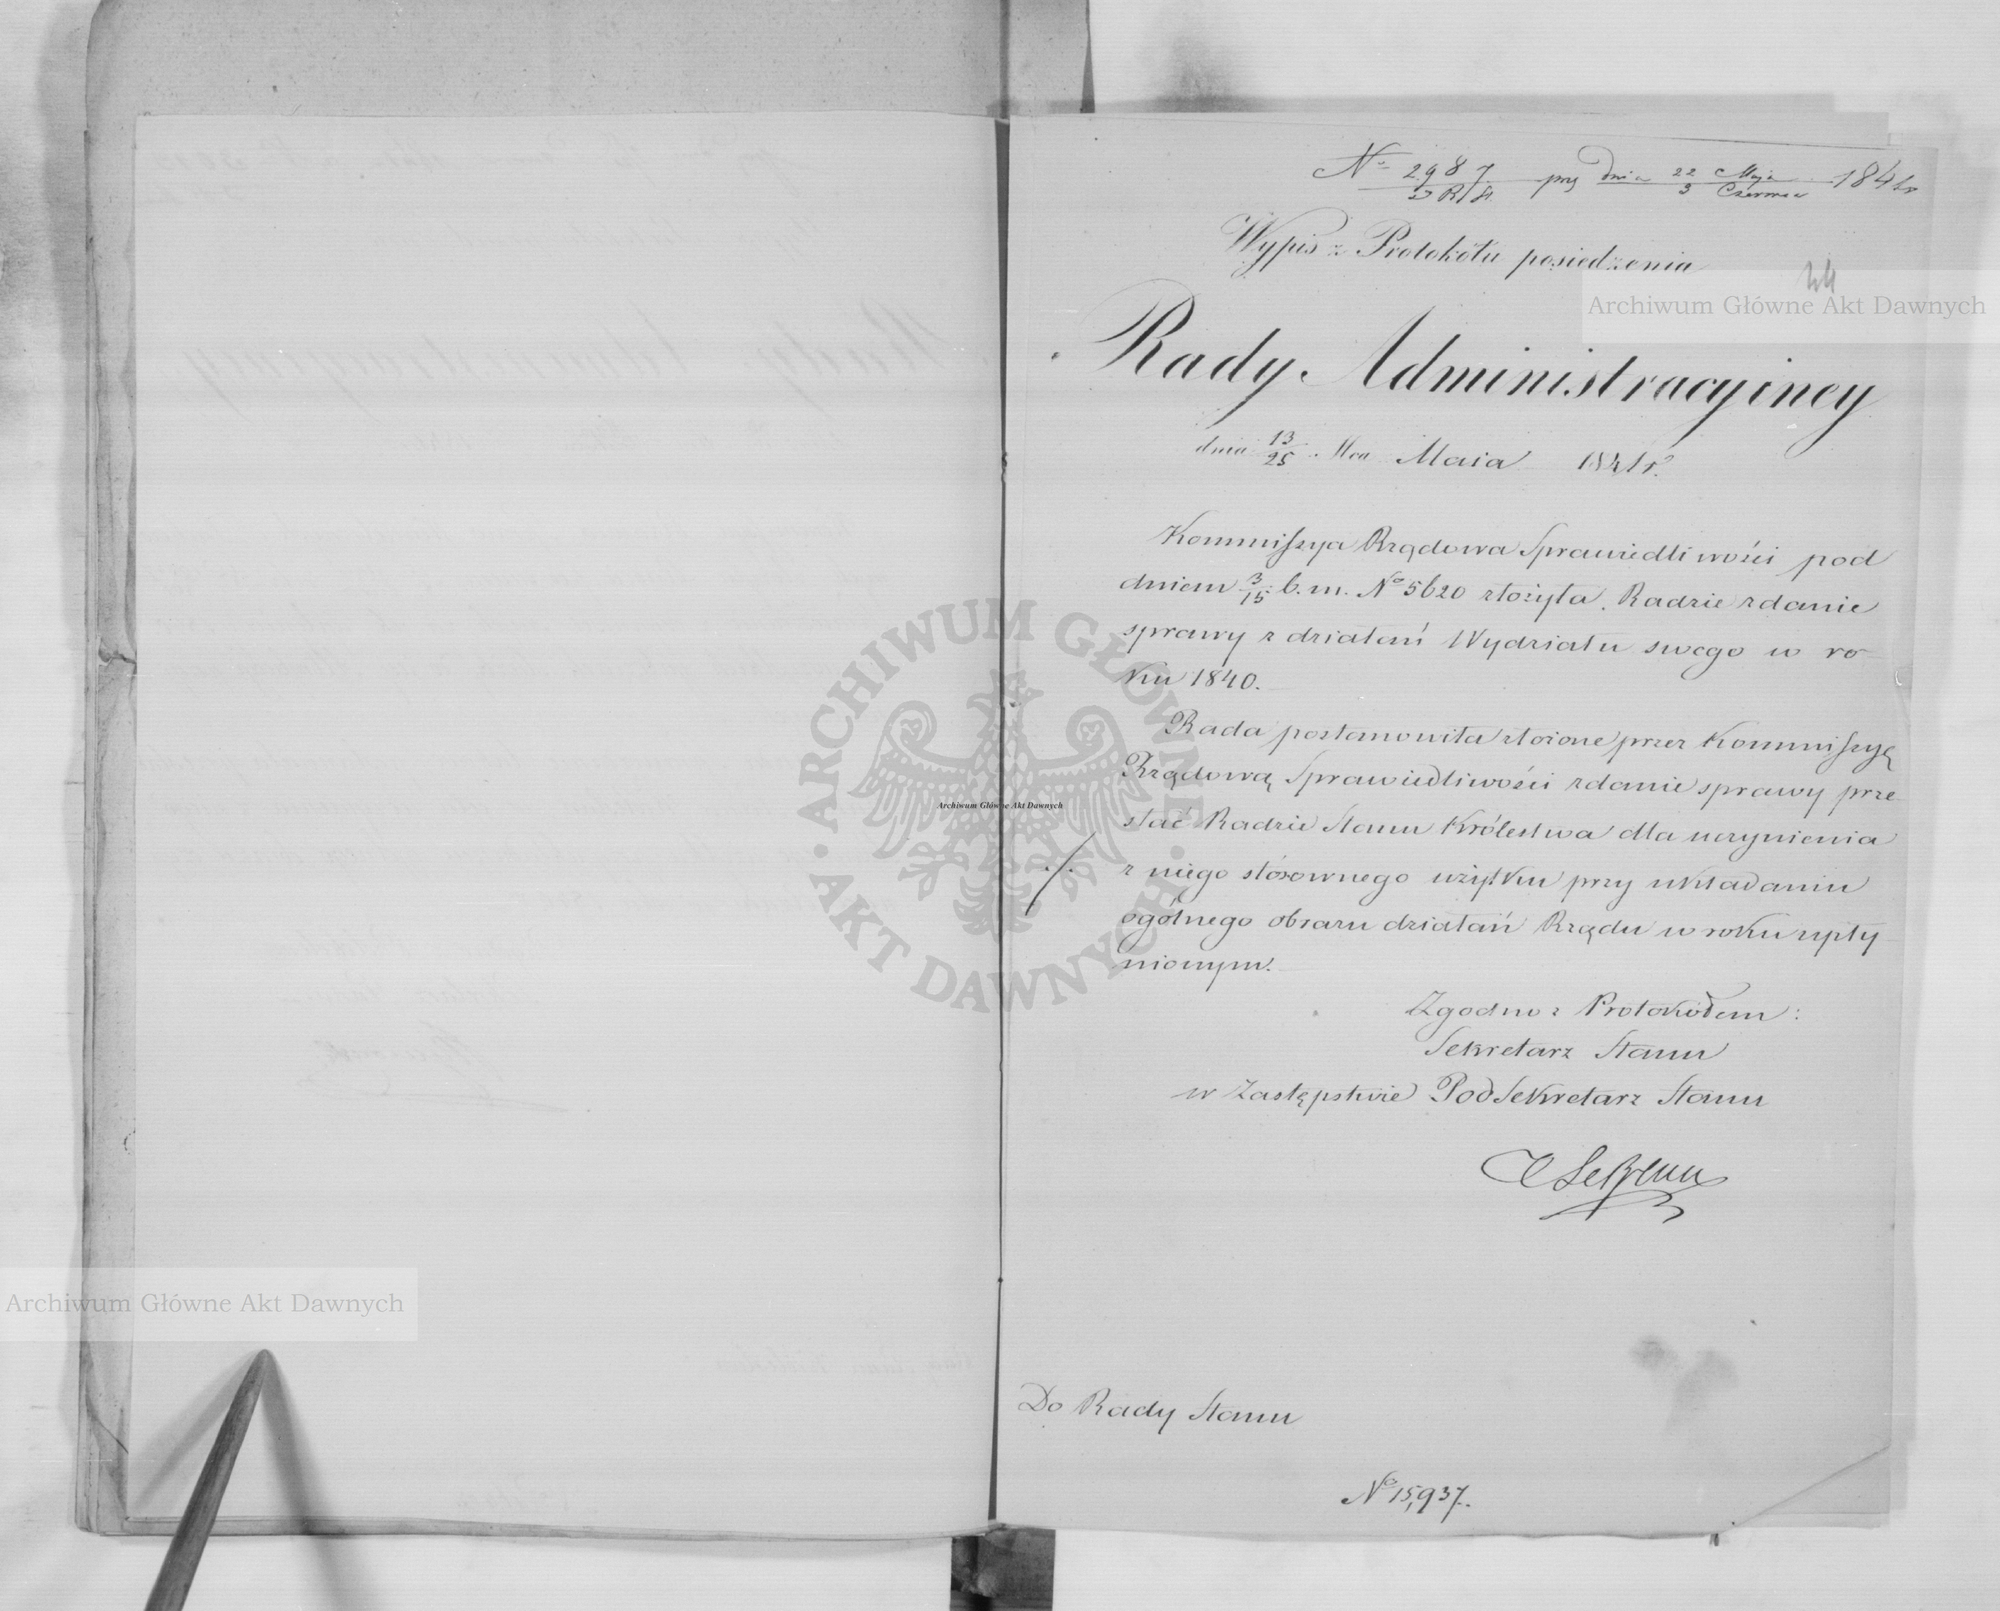 No 2987 dnia 22 Maja 1841 r
D R/St. 3 Czerwca
Wypis z Protokółu posiedzenia
Archiwum Główne Akt Dawnych
Rady Administracyiney
dnia 13/25 Mca Maia 1841 r.
Kommissya Rządowa Sprawiedliwości pod
dniem 3/15 b.m. No 5620 złożyła Radzie zdanie
sprawy z działań Wydziału swego w ro-
ku 1840.
Rada postanowiła złożone przez Kommissyę
Rządową Sprawiedliwości zdanie sprawy prze-
słać Radzie Stanu Królestwa dla uczynienia
z niego stósownego użytku przy układaniu
ogólnego obrazu działań Rządu w roku upły-
nionym.
Zgodno z Protokółem:
Sekretarz Stanu
w Zastępstwie PodSekretarz Stanu
Do Rady Stanu
No 15,937.
ARCHIWUM GŁÓWNE AKT DAWNYCH
Archiwum Główne Akt Dawnych
Archiwum Główne Akt Dawnych